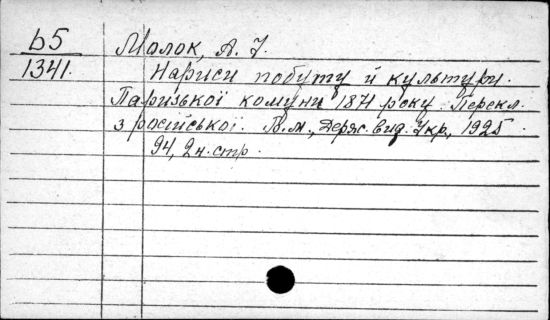 Б5
1341.
Молок, А. І.
Нариси побуту й культури.
Паризької комуни 1871 року. Перекл.
з російської. В.м., Держ. вид. Укр., 1925.
94, 2 н. стр.